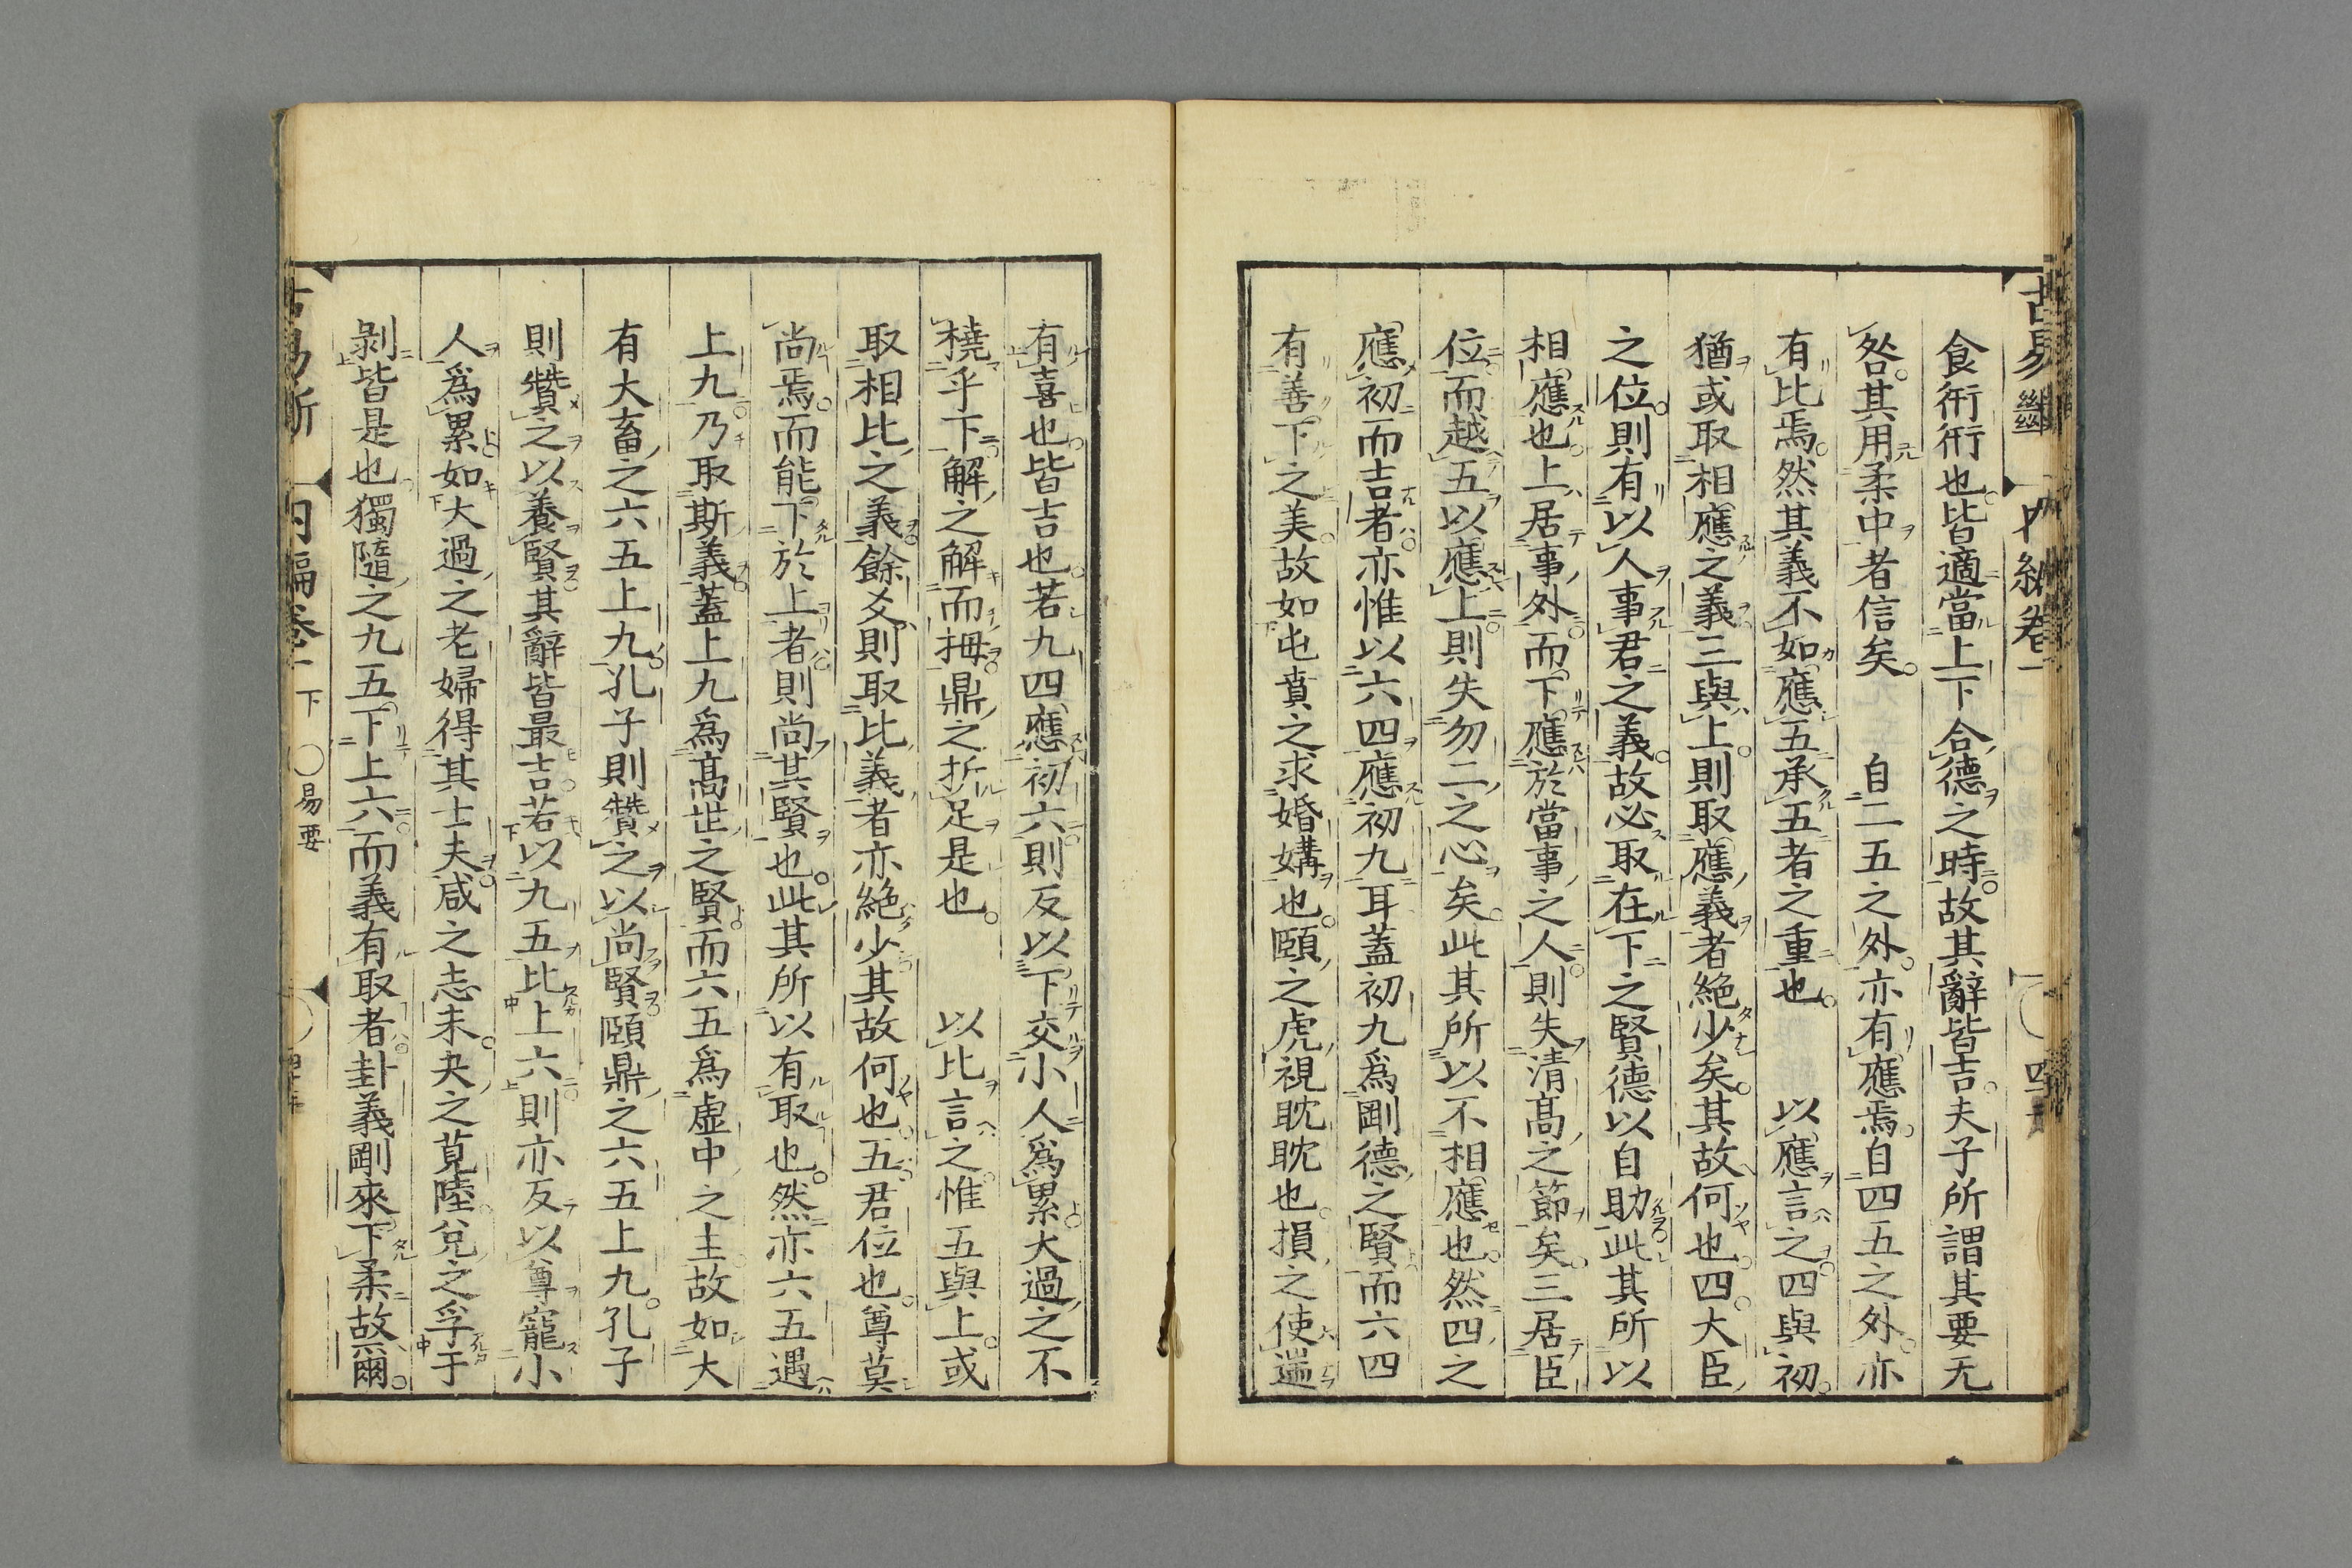 食衎衎也皆適當上下合德之時故其辭皆吉夫子所謂其要无
咎其用柔中者信矣　自二五之外亦有應焉自四五之外亦
有比焉然其義不如應五承五者之重也　以應言之四與初
猶或取相應之義三與上則取應義者絕少矣其故何也四大臣
之位則有以人事君之義故必取在下之賢德以自助此其所以
相應也上居事外而下應於當事之人則失清高之節矣三居臣
位而越五以應上則失勿二之心矣此其所以不相應也然四之
應初而吉者亦惟以六四應初九耳蓋初九爲剛德之賢而六四
有善下之美故如屯賁之求婚媾也頤之虎視眈眈也損之使遄
有喜也皆吉也若九四應初六則反以下交小人爲累大過之不
橈乎下解之解而拇鼎之折足是也　以比言之惟五與上或
取相比之義餘爻則取比義者亦絕少其故何也五君位也尊莫
尚焉而能下於上者則尚其賢也此其所以有取也然亦六五遇
上九乃取斯義蓋上九爲高世之賢而六五爲虛中之主故如大
有大畜之六五上九孔子則贊之以尚賢頤鼎之六五上九孔子
則贊之以養賢其辭皆最吉若以九五比上六則亦反以尊寵小
人爲累如大過之老婦得其士夫咸之志末夬之莧陸兌之孚于
剝皆是也獨隨之九五下上六而義有取者卦義剛來下柔故爾
内編卷一　下　〇易要